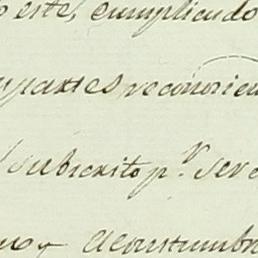 este, cumpliendo
partes reconocien
subscrito p.r ser
acostumbr